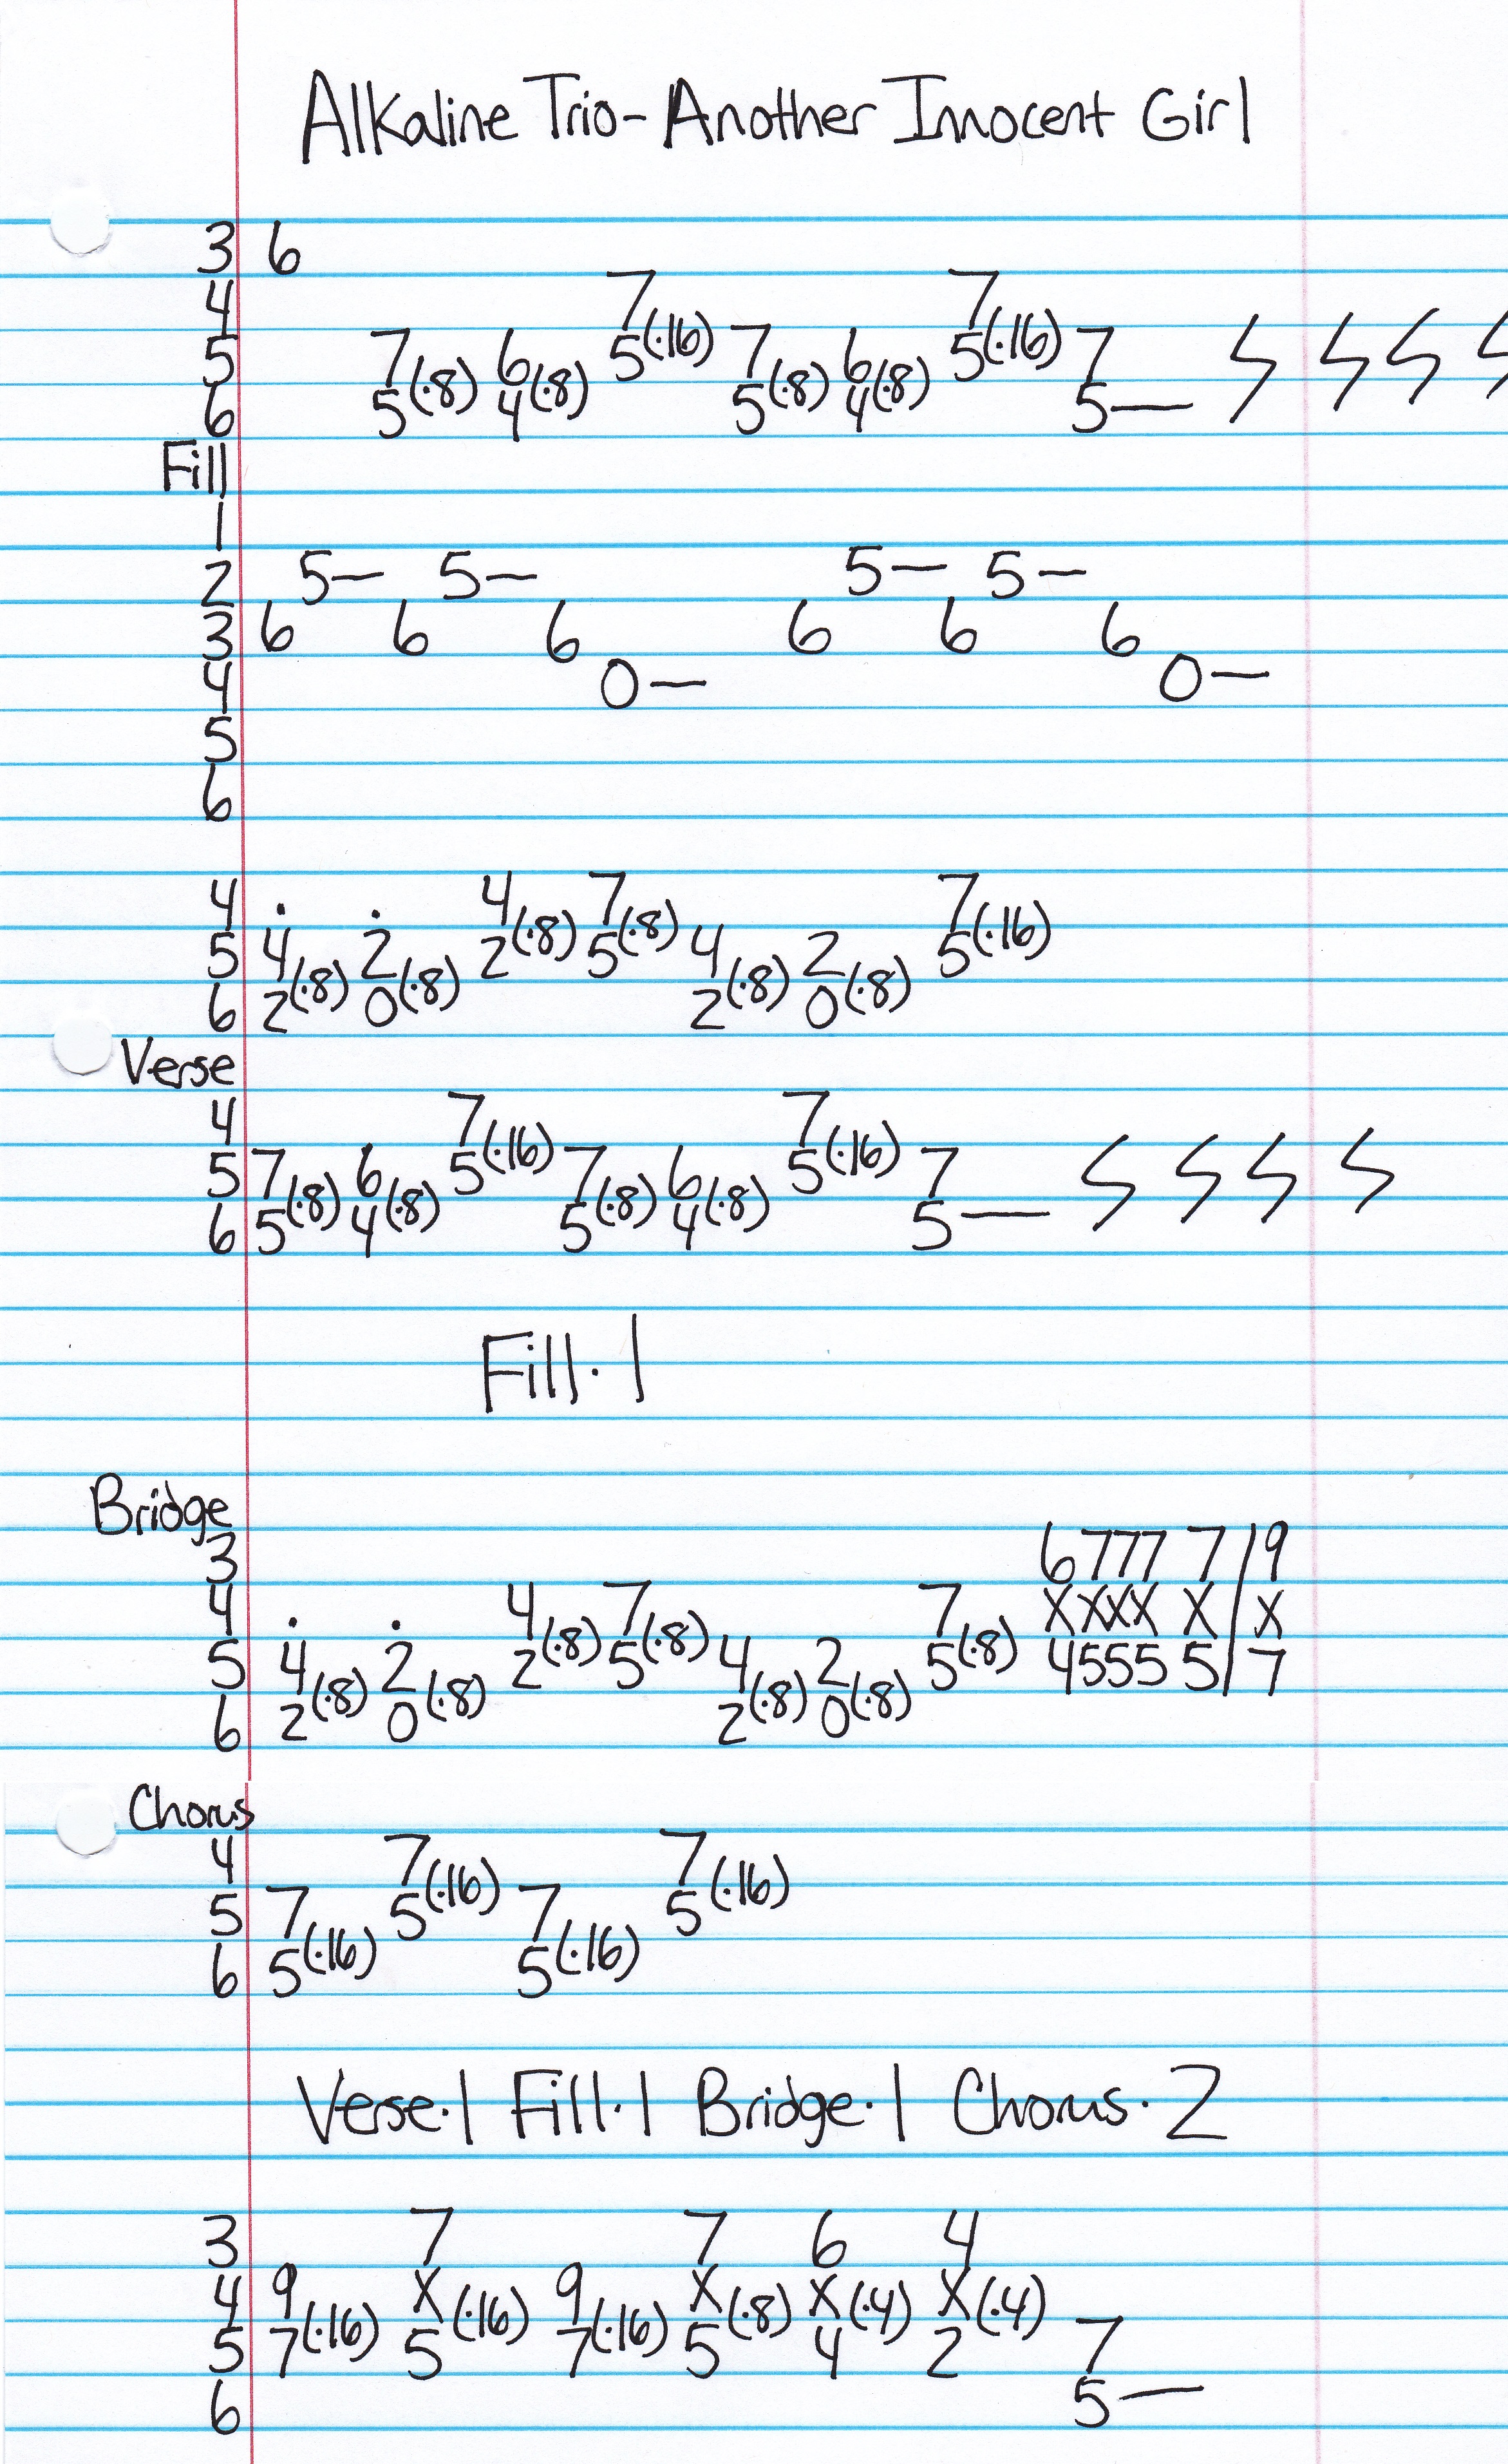 Alkaline Trio - Another Innocent Girl
3 6
4 7 7
5 7(·8) 6(·8) 5(·16) 7(·8) 6(·8) 5(·16) 7
6 5 4 5 4 5—
Fill
1
2 5— 5— 5— 5—
3 6 6 6 6 6 6
4 0— 0—
5
6
4 · · 4(·8) 7(·8) 7(·16)
5 4 2 2 5 4 2 5
6 2(·8) 0(·8) 2(·8) 0(·8)
Verse
4 7 7
5 7(·8) 6(·8) 5(·16) 7(·8) 6(·8) 5(·16) 7
6 5 4 5 4 5—
Fill·1
Bridge
3 6 7 7 7 7 / 9
4 · · 4(·8) 7(·8) 7(·8) X X X X X / X
5 4 2 2 5 4 2 5 4 5 5 5 5 / 7
6 2(·8) 0(·8) 2(·8) 0(·8)
Chorus
4 7 7
5 7 5(·16) 7 5(·16)
6 5(·16) 5(·16)
Verse·1 Fill·1 Bridge·1 Chorus·2
3 7 7 6 4
4 9 X(·16) 9 X(·8) X(·4) X(·4)
5 7(·16) 5 7(·16) 5 4 2 7
6 5—